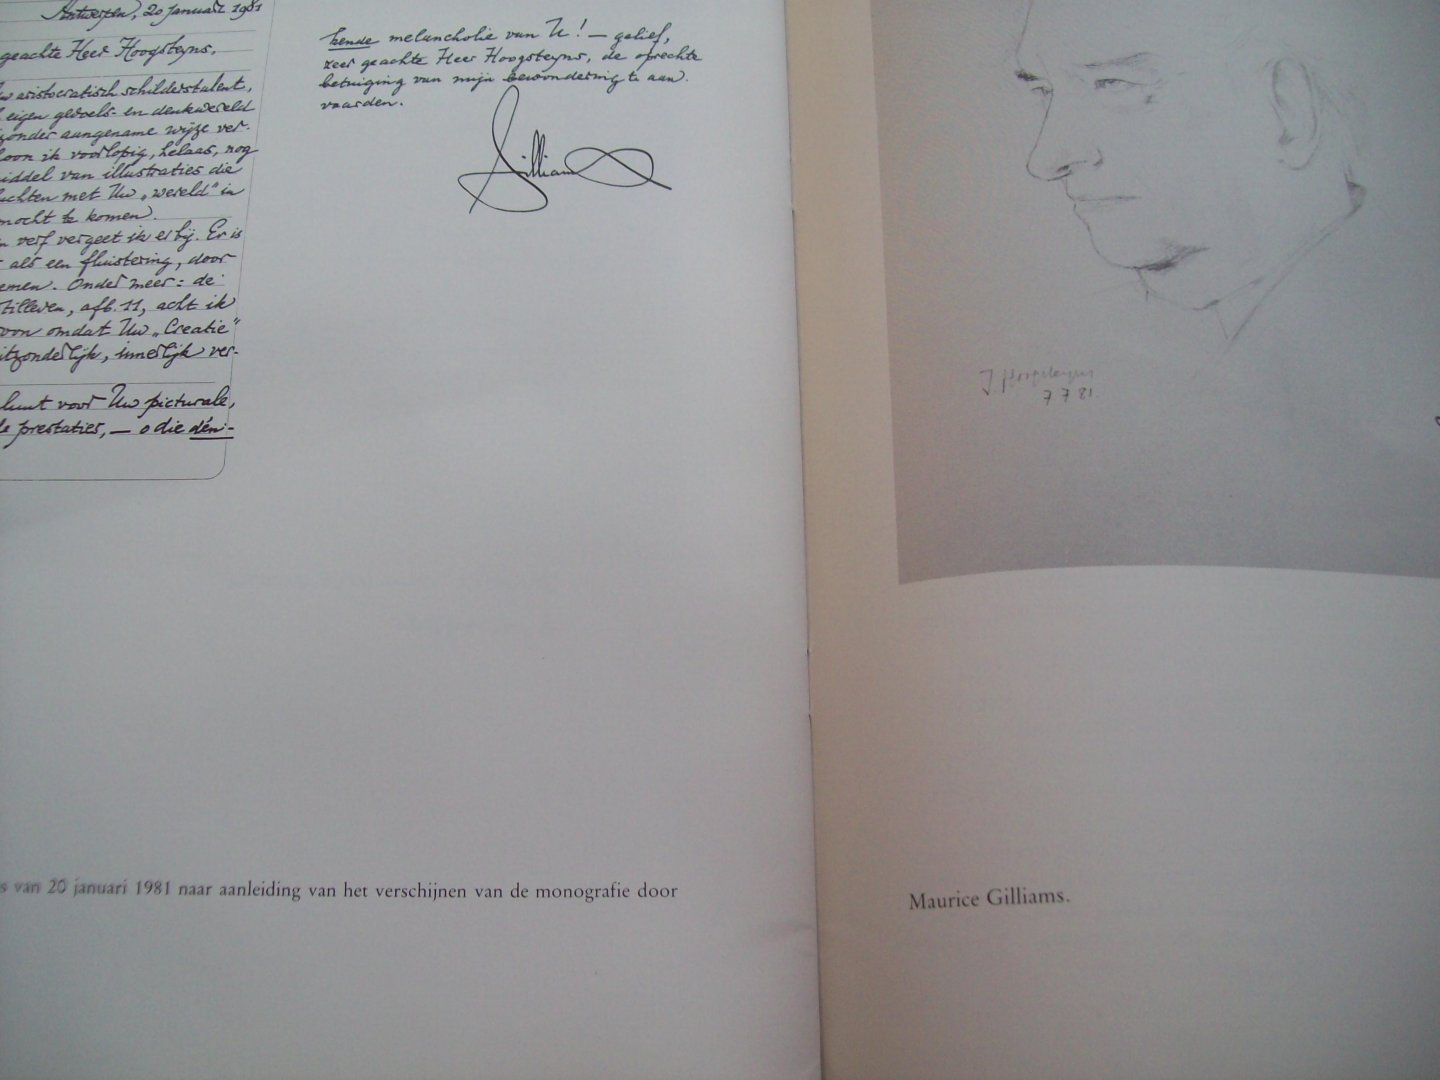 Antwerpen, 20 januari 1981
geachte Heer Hoogsteyns,
aristocratisch schilderstalent,
eigen gevoels- en denkwereld
zonder aangename wijze ver-
loon ik voorlopig, helaas, nog
middel van illustraties die
luchten met Uw „wereld" in
mocht te komen.
verf vergeet ik erbij. Er is
als een fluistering, door
emen. Onder meer: de
tilleven, afb. 11, acht ik
von omdat Uw „Creatie"
itzonderlijk, innerlijk ver-
lunt voor Uw picturale,
le prestaties, — o die dén-
kende melancholie van U! — gelief,
zeer geachte Heer Hoogsteyns, de oprechte
betuiging van mijn bewondering te aan
vaarden.
Gilliams
s van 20 januari 1981 naar aanleiding van het verschijnen van de monografie door
J. Hoogsteyns
7 7 81
Maurice Gilliams.